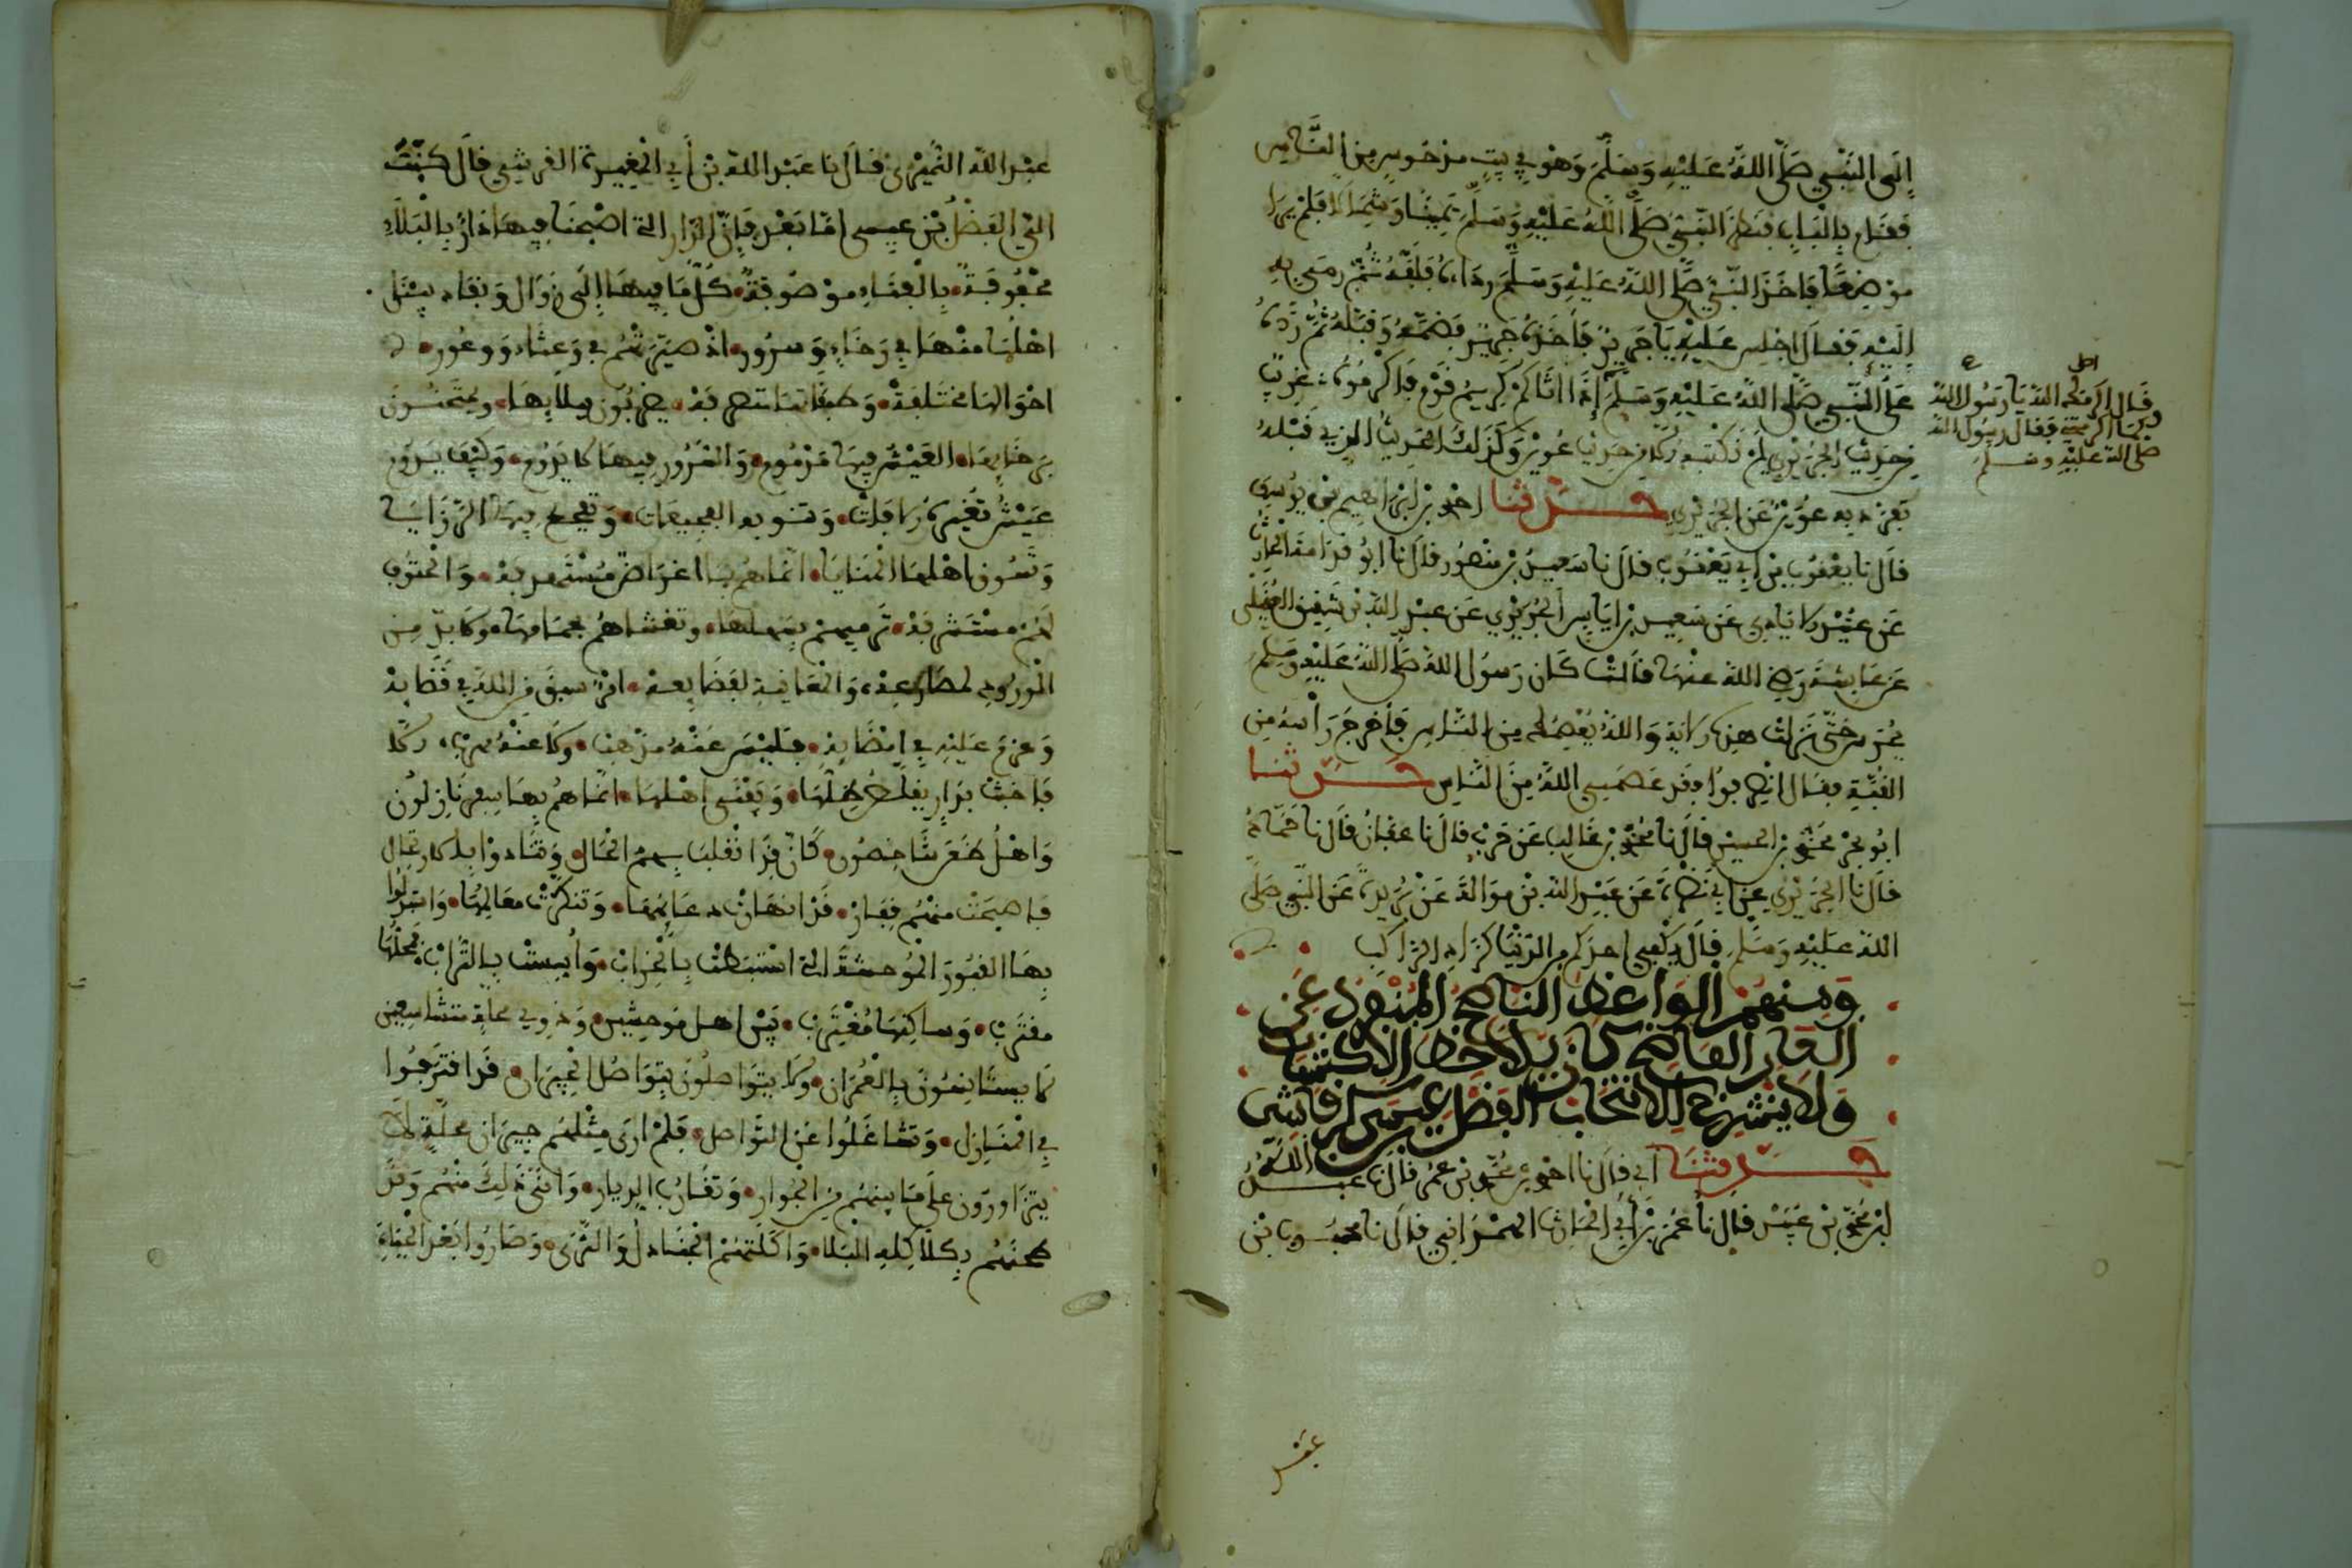 إِلَى النَّبِيِّ صَلَّى اللَّهُ عَلَيْهِ وَسَلَّمَ وَهُوَ فِي بَيْتٍ مَدْحُوسٍ مِنَ النَّاسِ
فَقَامَ بِالْبَابِ فَنَظَرَ النَّبِيُّ صَلَّى اللَّهُ عَلَيْهِ وَسَلَّمَ يَمِينًا وَشِمَالًا فَلَمْ يَرَ
مَوْضِعًا فَأَخَذَ النَّبِيُّ صَلَّى اللَّهُ عَلَيْهِ وَسَلَّمَ رِدَاءَهُ فَلَفَّهُ ثُمَّ رَمَى بِهِ
إِلَيْهِ فَقَالَ اجْلِسْ عَلَيْهِ يَا جَرِيرُ فَأَخَذَهُ جَرِيرٌ فَضَمَّهُ وَقَبَّلَهُ ثُمَّ رَدَّهُ
عَلَى النَّبِيِّ صَلَّى اللَّهُ عَلَيْهِ وَسَلَّمَ إِذَا أَتَاكُمْ كَرِيمُ قَوْمٍ فَأَكْرِمُوهُ غريب
من حديث الجريري لم نكتبه إلا من حديث عوين وكذلك الحديث الذي قبله
تفرد به عوين عن الجريري حدثنا احمد بن ابراهيم بن يوسف
قال نا يعقوب بن ابي يعقوب قال نا سعيد بن منصور قال نا ابو قدامة الحارث
عن عبيد الايادي عن سعيد بن اياس الجريري عن عبد الله بن شقيق العقيلي
عن عايشة رضي الله عنها قالت كان رسول الله صلى الله عليه وسلم
يحرس حتى نزلت هذه الاية والله يعصمك من الناس فأخرج رأسه من
القبة فقال انصرفوا فقد عصمني الله من الناس حدثنا
ابو بحر محمد بن الحسين قال نا محمد بن غالب بن حرب قال نا عفان قال نا حماد
قال نا الجريري عن ابي نضرة عن عبد الله بن مولة عن بريدة عن النبي صلى
الله عليه وسلم قال يكفي احدكم من الدنيا كزاد الراكب
قال اكرمك الله يا رسول الله
كما اكرمتني فقال رسول الله
صلى الله عليه وسلم
ومنهم الواعظ الناصح المنفرد عن
كان بلاحظ الاكتساب
ولا ينشرح للانتخاب الفضل بن عيسى الرقاشي
حدثنا ابي قال نا احمد بن محمد بن عمر قال نا عبد الله
بن محمد بن عبيد قال نا عمر بن ابي الحارث الهمداني قال نا محبوب بن
عبد
عبد الله النميري قال نا عبد الله بن ابي المغيرة القرشي قال كتب
الي الفضل بن عيسى اما بعد فان الدار التي اصبحنا فيها دار بالبلاء
محفوفة بالفناء موصوفة كل ما فيها الى زوال ونفاد بينا
اهلها منها في رخاء وسرور اذ صيرتهم في وعثاء ووعور
احوالها مختلفة وطبقاتها متصرفة يضربون ببلائها ويمتحنون
برخائها العيش فيها مذموم والسرور فيها لا يدوم وكيف يدوم
عيش تغيره الافات وتنوبه الفجيعات وتفجع فيه الرزايا
وتسوق اهلها المنايا انما هم بها اغراض مستهدفة والحتوف
لهم مستشرفة ترميهم بسهامها وتغشاهم بحمامها ولا بد من
الورود لمشارعه والمعاينة لفظايعه امر سبق من الله في قضايه
وعزم عليه في امضايه فليس عنه مذهب ولا عنه مهرب الا
فاخبث بدار يقلص ظلها ويفنى اهلها انما هم بها سفر نازلون
واهل ظعن شاخصون كان قد انقلبت بهم الحال وتنادوا بالارتحال
فاصبحت منهم قفارا قد انهارت دعايمها وتنكرت معالمها واستبدلوا
بها القبور الموحشة التي استبطنت بالخراب وأسست بالتراب فمحلها
مقترب وساكنها مغترب بين اهل موحشين وذوي محلة متشاسعين
لا يستانسون بالعمران ولا يتواصلون تواصل الجيران قد اقتربوا
في المنازل وتشاغلوا عن التواصل فلم ارى مثلهم جيران محلة لا
يتزاورون على ما بينهم من الجوار وتقارب الديار وانى ذلك منهم وقد
طحنهم بكلكله البلا واكلتهم الجنادل والثرى وصاروا بعد الحياة